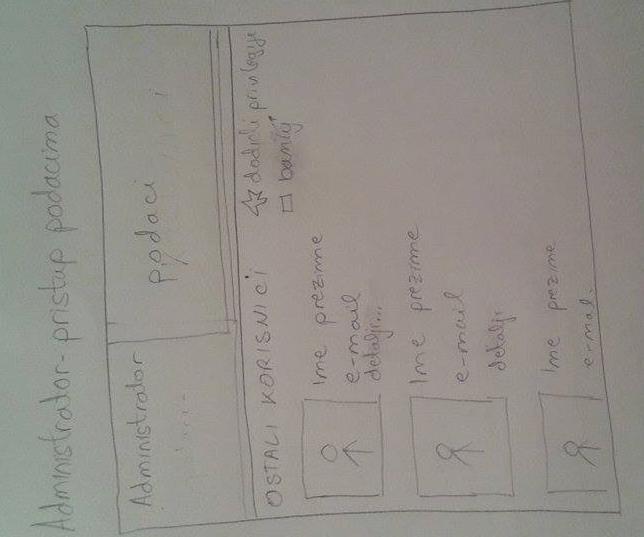 Administrator - pristup podacima
Administrator
podaci
OSTALI KORISNICI
dodijeli privilegije
Ime prezime
e-mail
detalji...
Ime prezime
e-mail
detalji
Ime prezime
e-mail